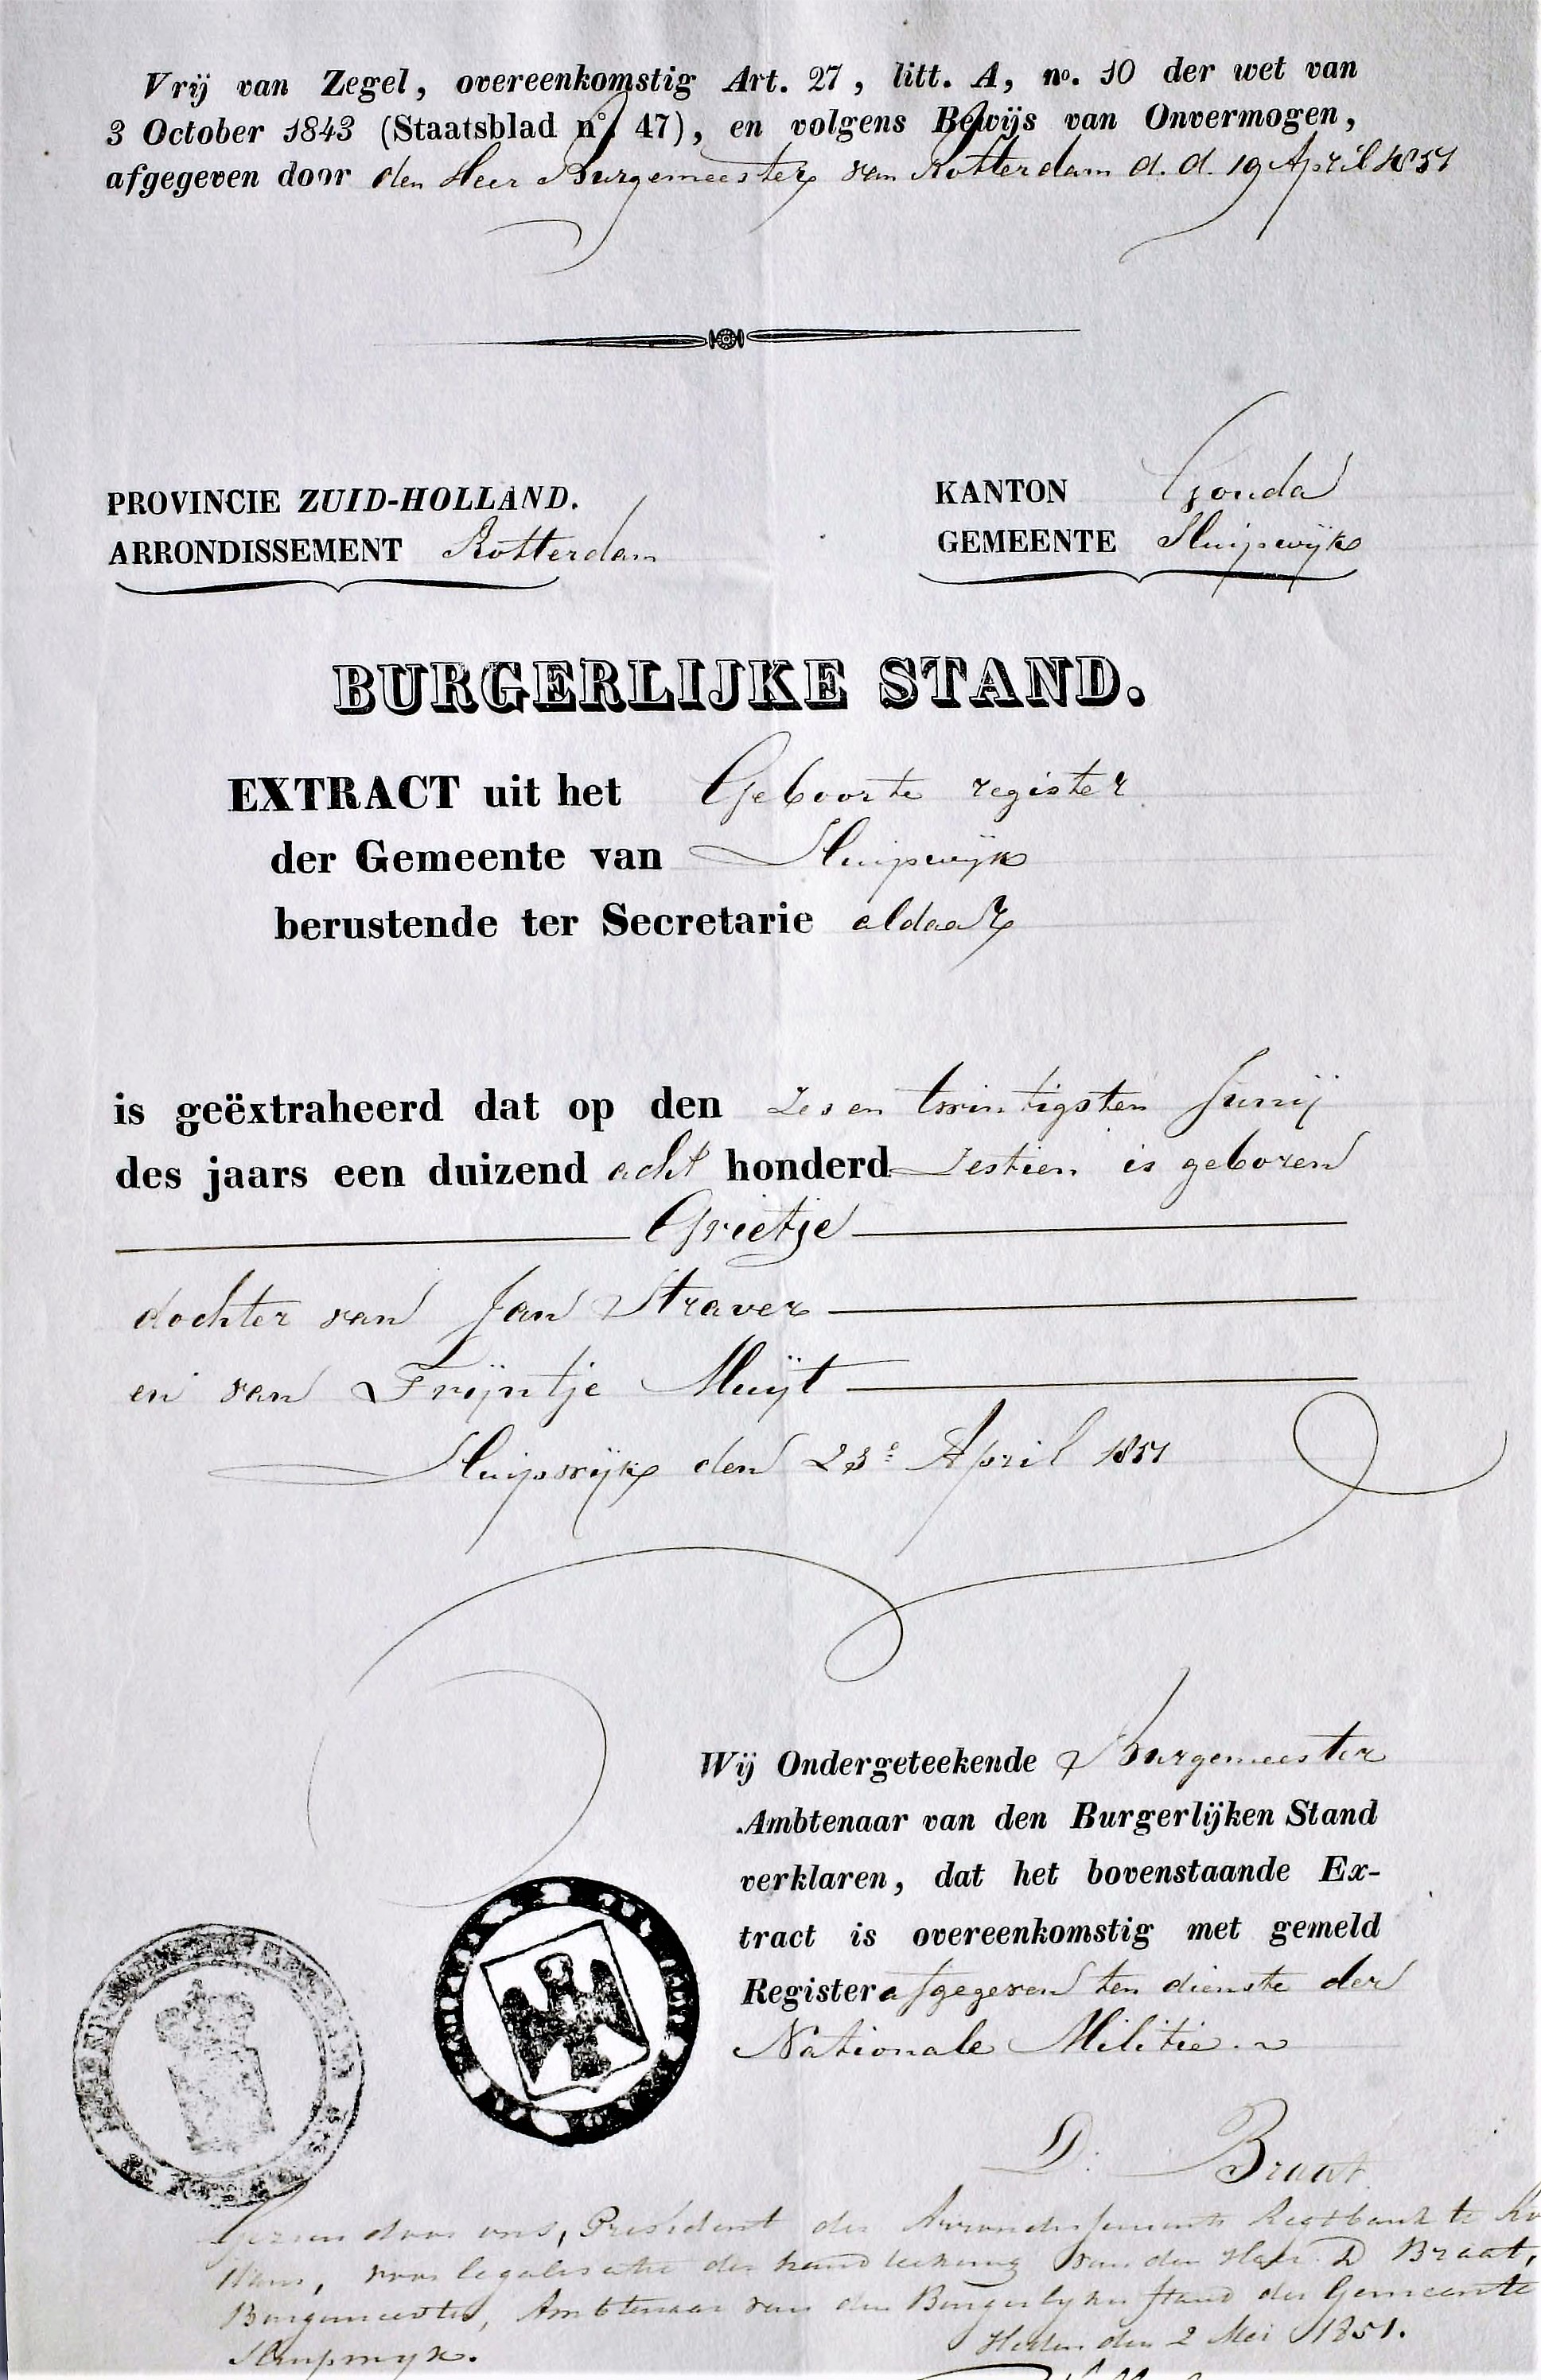 Vrij van Zegel, overeenkomstig Art. 27, litt. A, no. 10 der wet van
3 October 1843 (Staatsblad no. 47), en volgens Bewijs van Onvermogen,
afgegeven door den Heer Burgemeester van Rotterdam d.d. 19 April 1851
PROVINCIE ZUID-HOLLAND.
ARRONDISSEMENT Rotterdam
KANTON Gouda
GEMEENTE Sluipwijk
BURGERLIJKE STAND.
EXTRACT uit het Geboorte register
der Gemeente van Sluipwijk
berustende ter Secretarie aldaar
is geëxtraheerd dat op den Zesen twintigsten Junij
des jaars een duizend acht honderd Zestien is geboren
Grietje
dochter van Jan Straver
en van Trijntje Muijt
Sluipwijk den 23e April 1851
Wij Ondergeteekende Burgemeester
Ambtenaar van den Burgerlijken Stand
verklaren, dat het bovenstaande Ex-
tract is overeenkomstig met gemeld
Register afgegeven ten dienste der
Nationale Militie.
D. Braat
Gezien door ons, President der Arrondissements Regtbank te
voor legalisatie der handteekening van den Heer D Braat,
Burgemeester, Ambtenaar van den Burgerlyken Stand der Gemeente
Sluipwyk.
Heden den 2 Mei 1851.